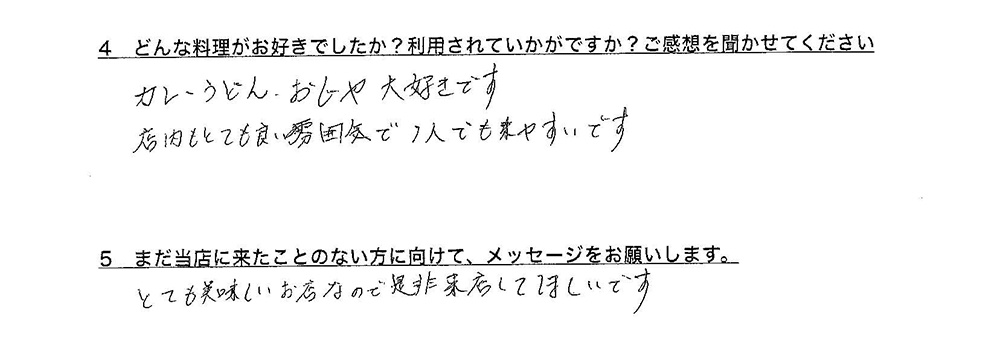 4 どんな料理がお好きでしたか？利用されていかがですか？ご感想を聞かせてください
カレーうどん、おじや 大好きです
店内もとても良い雰囲気で1人でも来やすいです
5 まだ当店に来たことのない方に向けて、メッセージをお願いします。
とても美味しいお店なので是非来店してほしいです